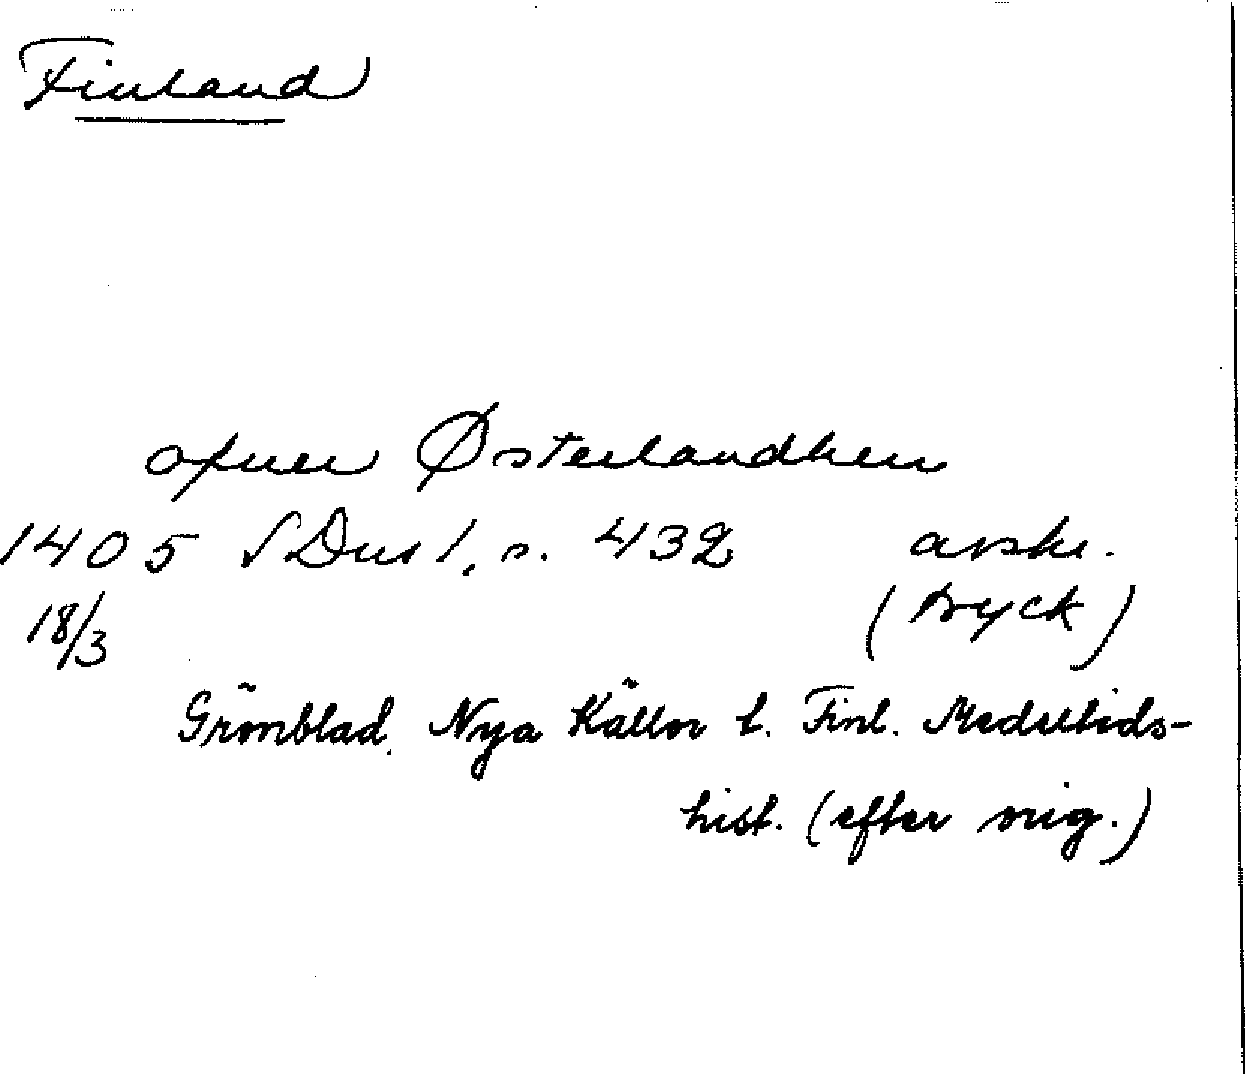 Finland
ofuer Østerlandhen
1405 SDns 1, s. 432 avskr.
18/3 (tryck)
Grönblad, Nya Källor t. Finl. Medeltids-
hist. (efter orig.)